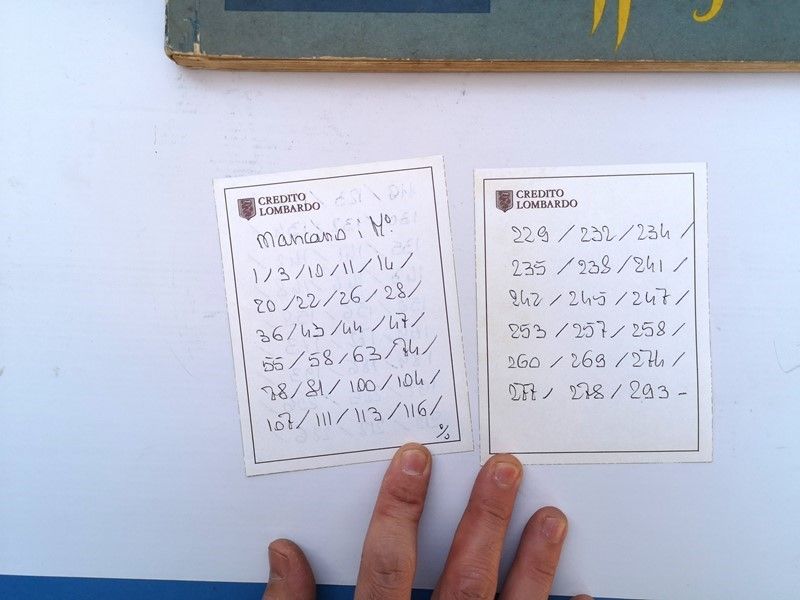 CREDITO
LOMBARDO
Mancano i N°
1/3/10/11/14/
20/22/26/28/
36/43/44/47/
55/58/63/74/
78/81/100/104/
107/111/113/116/
%
CREDITO
LOMBARDO
229/232/234/
235/238/241/
242/245/247/
253/257/258/
260/269/274/
277/278/293-